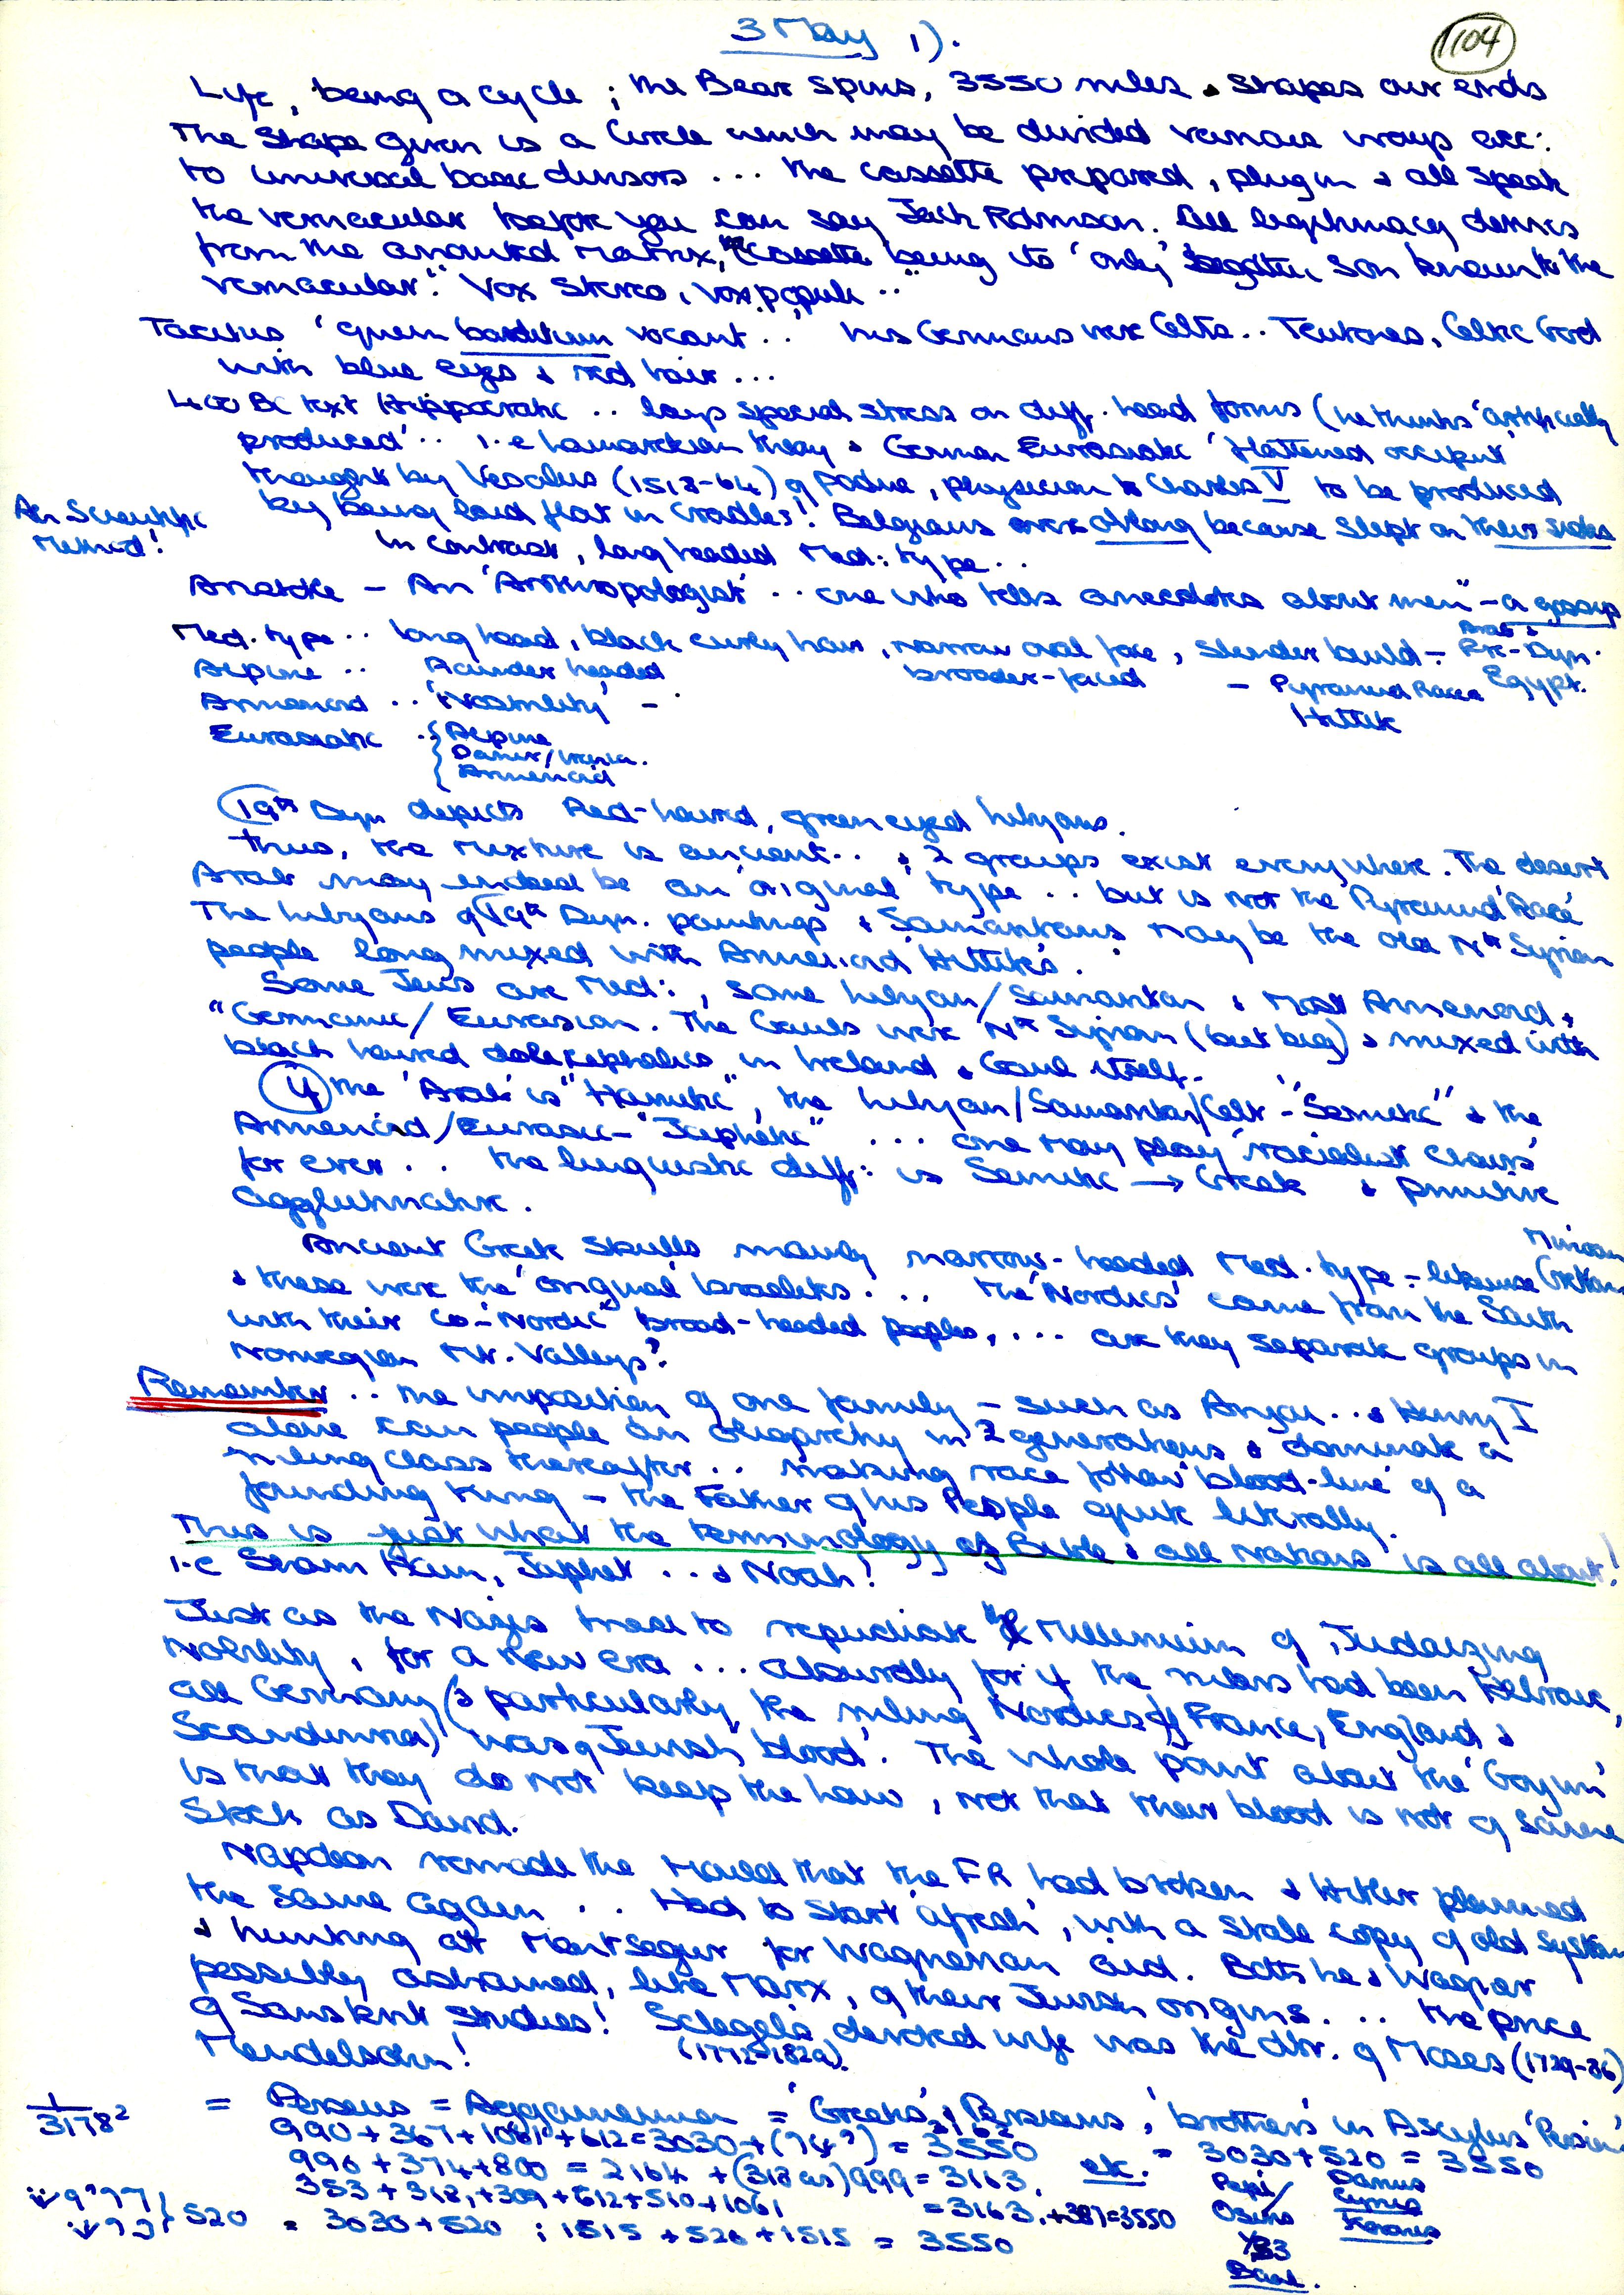 3 May 1).
104
Life, being a cycle; the Bear spins, 3550 miles & shapes our ends
The Shape given is a Circle which may be divided various ways acc:
to universal basic divisors ... the cassette prepared, plug in & all speak
the vernacular before you can say Jack Robinson. All legitimacy derives
from the anointed Matrix, the Cassette being its 'only' begotten son known to the
vernacular". Vox Stereo, vox populi ..
Tacitus 'quem barditum vocant.. his Germans were Celts.. Teutones, Celtic God
with blue eyes & red hair ...
400 BC text Hippocratic .. lays special stress on diff. head forms (he thinks 'artificially
produced'.. i.e Lamarckian theory & German Eurasiatic 'flattened occiput'
thought by Vesalius (1513-64) of Padua, physician to Charles V to be produced
by being laid flat in cradles! Belgians were oblong because slept on their sides
Ah Scientific
Method!
In contrast, long headed Med: type ..
Aristotle - An 'Anthropologist' .. one who tells anecdotes about men" - a gossip
Med. type .. long head, black curly hair, narrow oval face, slender build - Arab & Pre-Dyn. Egypt.
Alpine .. Rounder headed broader-faced - Pyramid Race
Armenoid .. 'Nostrility' - Hittite
Eurasiatic .. { Alpine
Armenoid
19th Dyn depicts Red-haired, green eyed Libyans.
Thus, the mixture is ancient .. & 2 groups exist everywhere. The desert
Arab may indeed be an 'original' type .. but is not the 'Pyramid Race'
The Libyans of 19th Dyn. paintings & Samaritans may be the old Nth Syrian
people long mixed with Armenoid Hittites.
Some Jews are Med:, some Libyan/Samaritan & Most Armenoid &
"Germanic/Eurasian. The Gauls were Nth Syrian (but big) & mixed with
black haired dolicephalics in Ireland & Gaul itself.
If the 'Arab' is "Hamitic", the Libyan/Samaritan/Celt - "Semitic" & the
Armenoid/Eurasic - "Japhetic" ... one may play 'racialist chairs'
for ever .. the linguistic diff: is Semitic → Greek & primitive
agglutinative.
Ancient Greek skulls mainly narrow-headed Med. type - likewise Minoan Cretan
& these were the 'original' Israelites ... the 'Nordics' came from the South
with their co-"Nordic" broad-headed peoples, ... are they separate groups in
Norwegian Mt. Valleys?
Remember .. the imposition of one family - such as Anjou .. & Henry I
alone can people an oligarchy in 2 generations & dominate a
ruling class thereafter .. making race follow 'blood-line' of a
founding King - the Father of his People quite literally.
This is just what the terminology of Bible & all Nations is all about!
i.e Shem Ham, Japhet ... & Noah!
Just as the Nazis tried to repudiate the Millennium of Judaizing
Nobility, for a New era ... absurdly for if the rulers had been Hebraic,
all Germany (& particularly, the ruling Nordics of France, England &
Scandinavia) was of Jewish 'blood'. The whole point about the 'Goyim'
is that they do not keep the Law, not that their blood is not of same
Stock as David.
Napoleon remade the Mould that the FR had broken & Hitler planned
the same again .. Had to start 'afresh', with a stale copy of old system
& hunting at Montsegur for Wagnerian aid. Both he & Wagner
possibly ashamed, like Marx, of their Jewish origins ... the price
of Sanskrit studies! Schlegel's devoted wife was the dtr. of Moses (1729-86)
Mendelsohn! (1772-1829).
1/3178² = Perseus = Agamemnon = 'Greeks' & Persians, 'brothers' in Ascylus 'Persians'
990 + 367 + 1061 + 612 = 3030 + (74?) = 3550 = 3030 + 520 = 3550
996 + 374 + 800 = 2164 + (318 as) 999 = 3163. etc.
353 + 318, + 309 + 612 + 510 + 1061 = 3163, + 387 = 3550
520 = 3030 + 520 ; 1515 + 520 + 1515 = 3550
Pepi/
Osiris
Darius
Cyrus